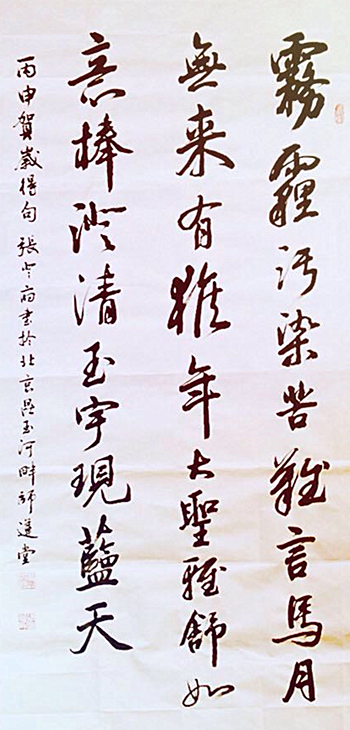 霧霾污染苦難言馬月
無来有猴年大聖雅舒如
意棒澄清玉宇現藍天
丙申賀歲得句 張 書於北京昆玉河畔師堂